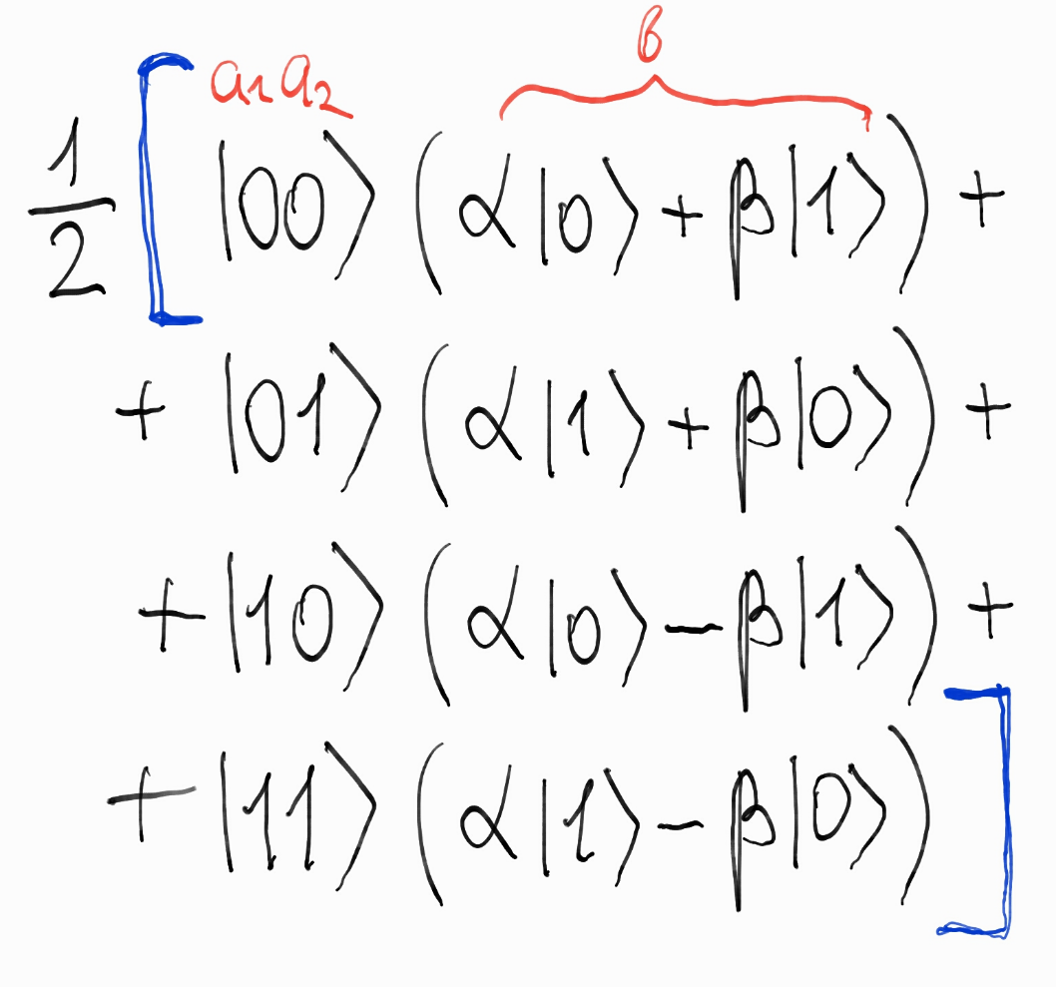 a₁a₂ b
1/2 [ |00⟩ (α|0⟩ + β|1⟩) +
+ |01⟩ (α|1⟩ + β|0⟩) +
+ |10⟩ (α|0⟩ − β|1⟩) +
+ |11⟩ (α|1⟩ − β|0⟩) ]